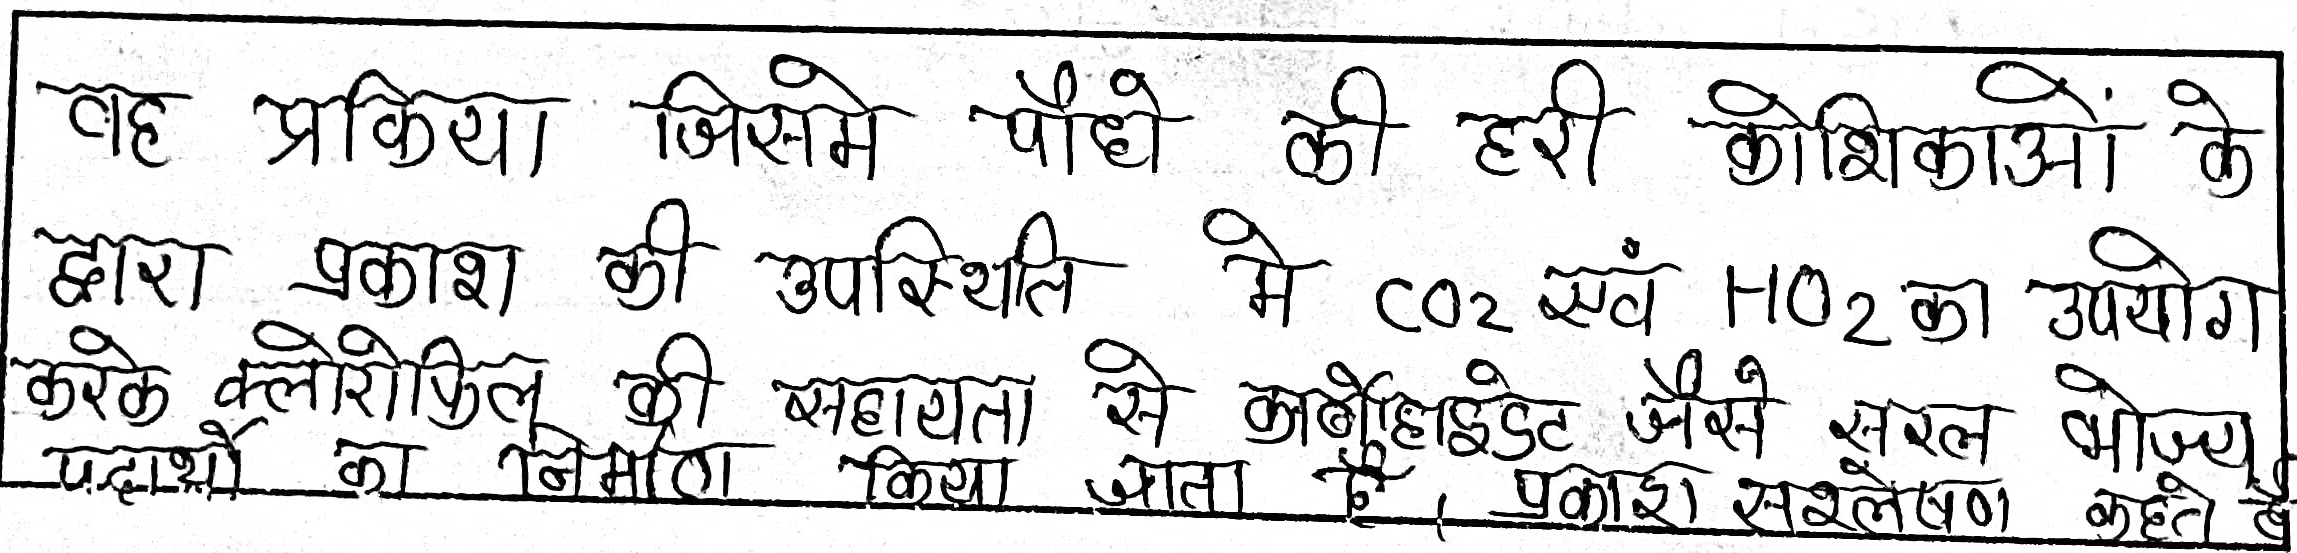 वह प्रकिया जिसमे पौधे की हरी कोशिकाओं के
द्वारा प्रकाश की उपस्थिति मे CO2 एवं HO2 का उपयोग
करके क्लोरोफिल की सहायता से कार्बोहाइडेट जैसे सरल भोज्य
पदार्थो का निर्माण किया जाता है, प्रकाश सश्लेषण कहते है